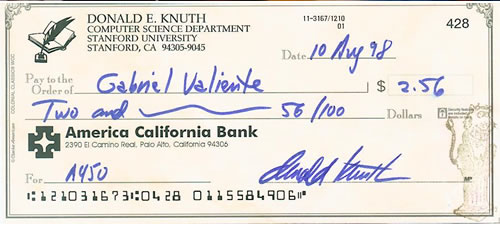 DONALD E. KNUTH
COMPUTER SCIENCE DEPARTMENT
STANFORD UNIVERSITY
STANFORD, CA 94305-9045
11-3167/1210
01
428
Date 10 Aug 98
Pay to the
Order of Gabriel Valiente $ 2.56
Two and 56/100 Dollars
America California Bank
2390 El Camino Real, Palo Alto, California 94306
For A450 Donald Knuth
121031673 0428 0115584906